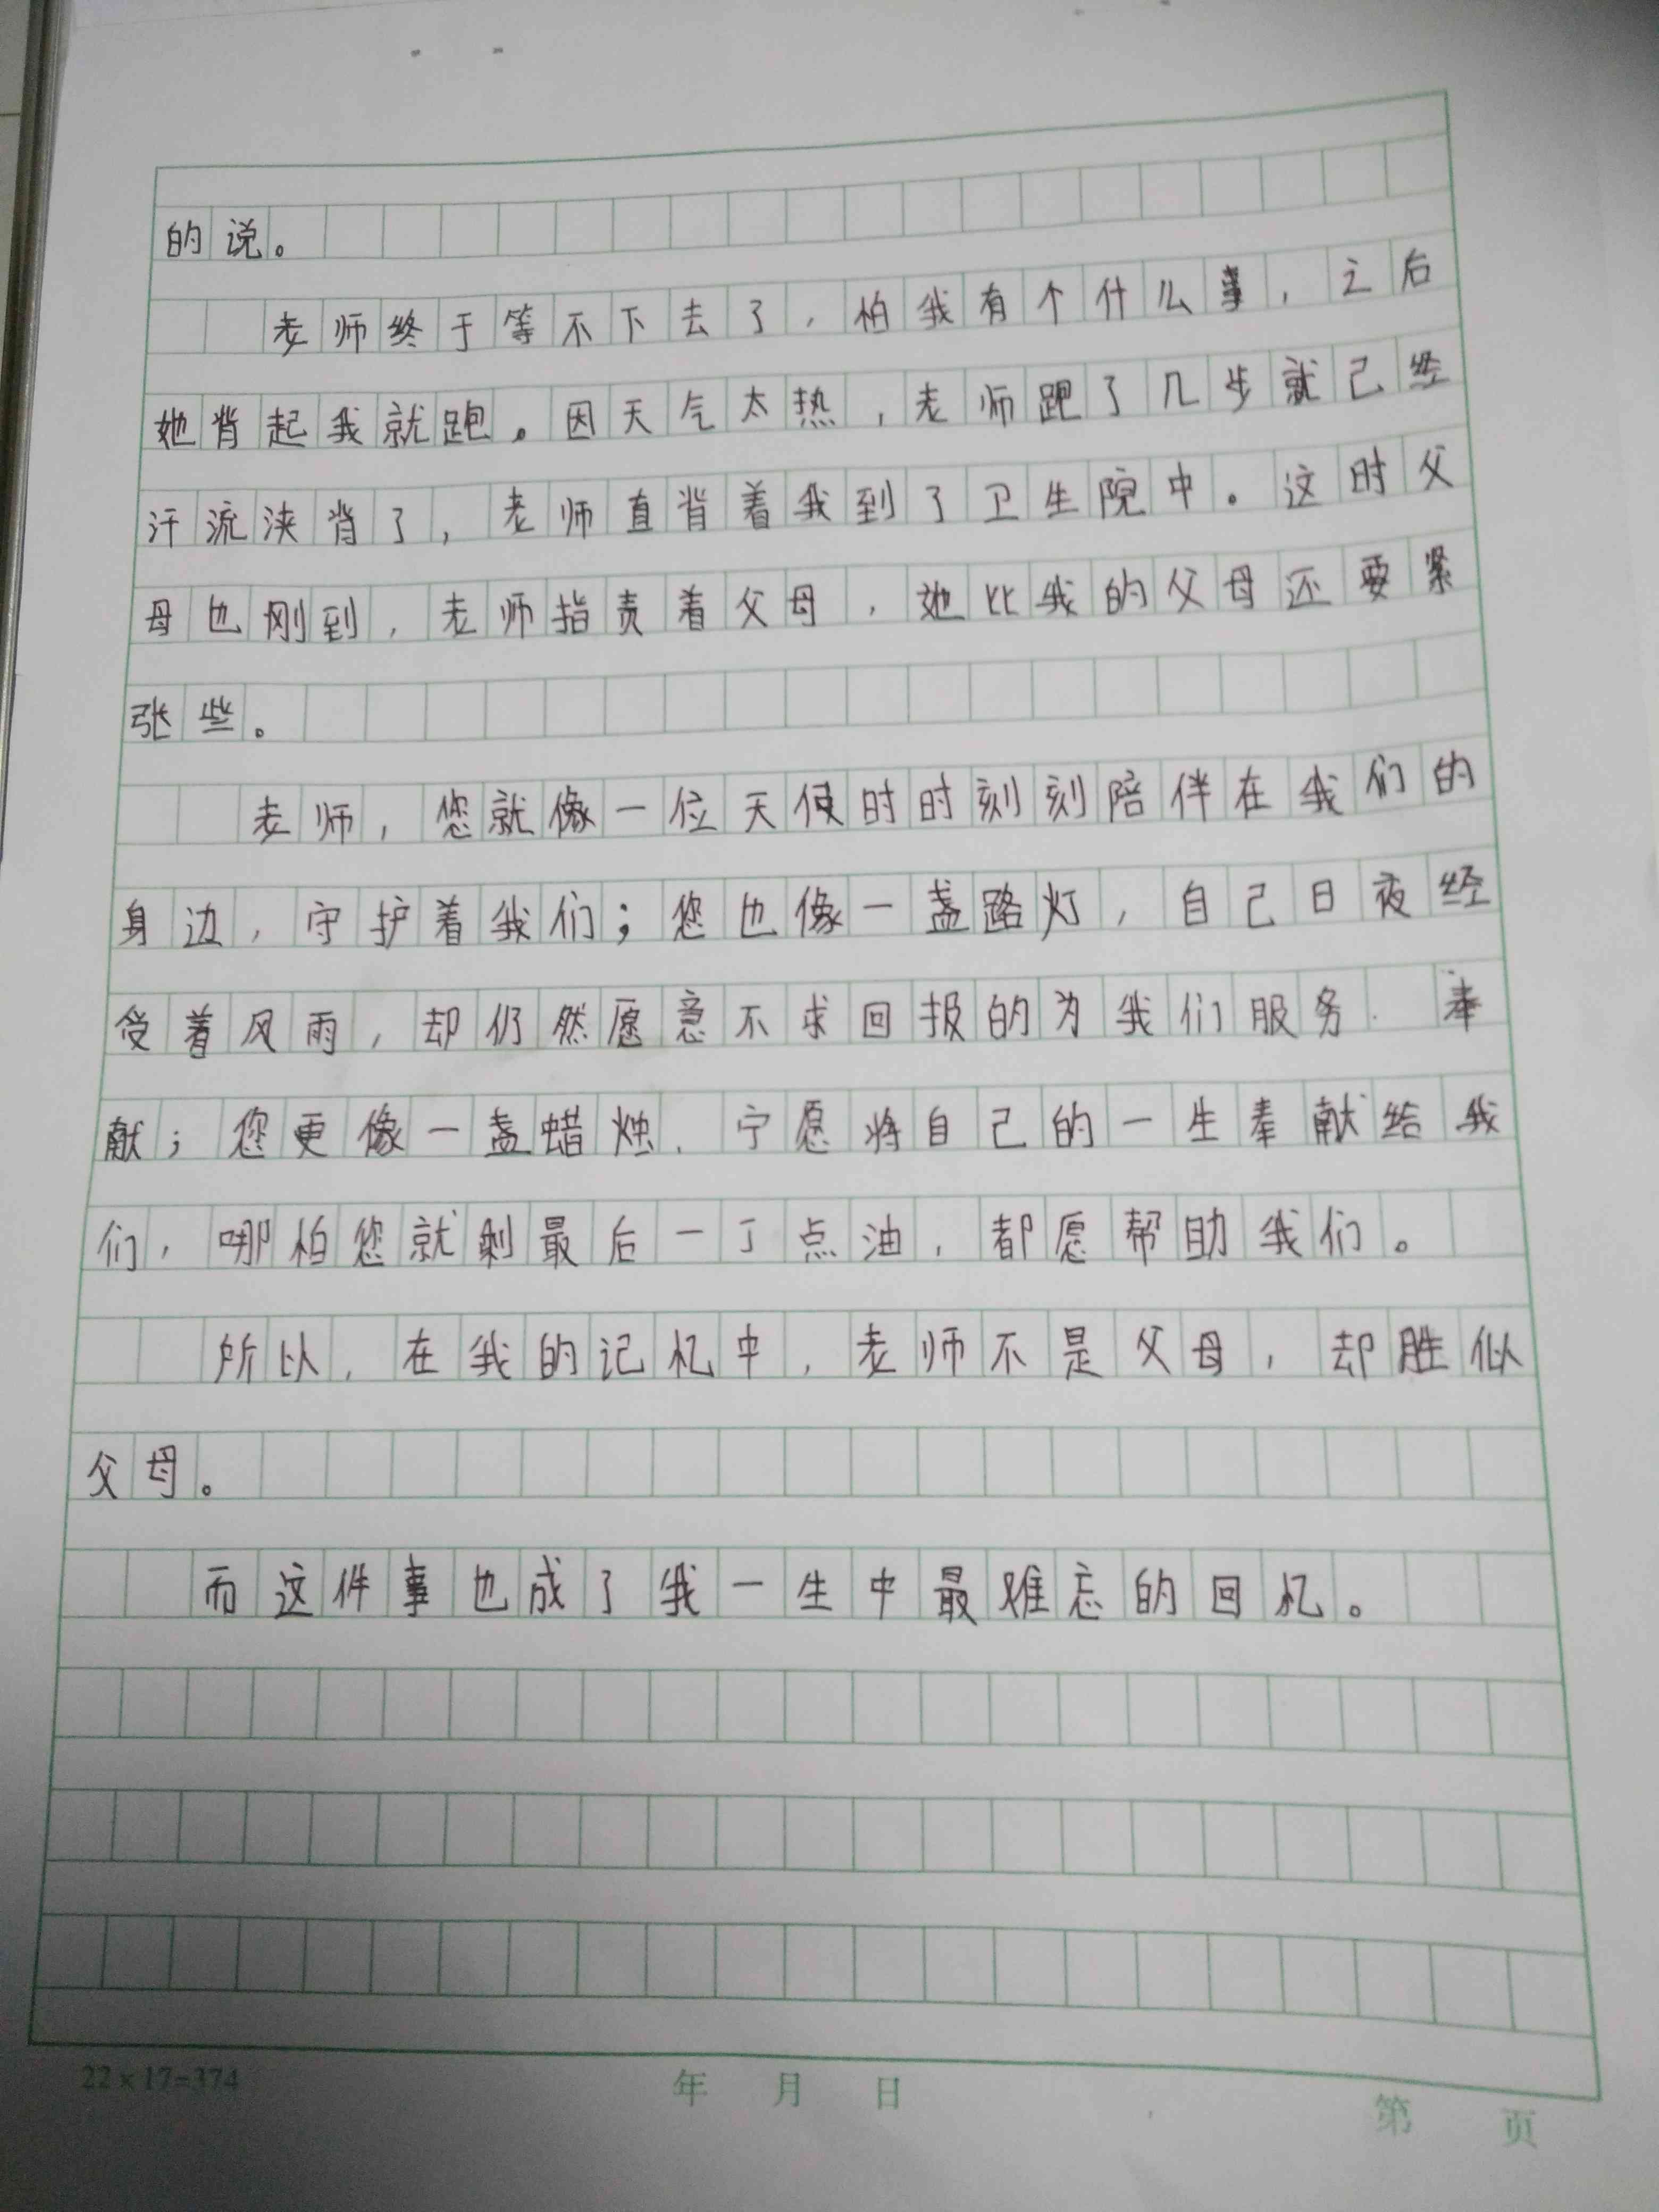 的说。
老师终于等不下去了，怕我有个什么事，之后
她背起我就跑。因天气太热，老师跑了几步就己经
汗流浃背了，老师直背着我到了卫生院中。这时父
母也刚到，老师指责着父母，她比我的父母还要紧
张些。
老师，您就像一位天使时时刻刻陪伴在我们的
身边，守护着我们；您也像一盏路灯，自己日夜经
受着风雨，却仍然愿意不求回报的为我们服务．奉
献；您更像一盏蜡烛．宁愿将自己的一生奉献给我
们，哪怕您就剩最后一丁点油，都愿帮助我们。
所以，在我的记忆中，老师不是父母，却胜似
父母。
而这件事也成了我一生中最难忘的回忆。
22×17=374 年 月 日 第 页